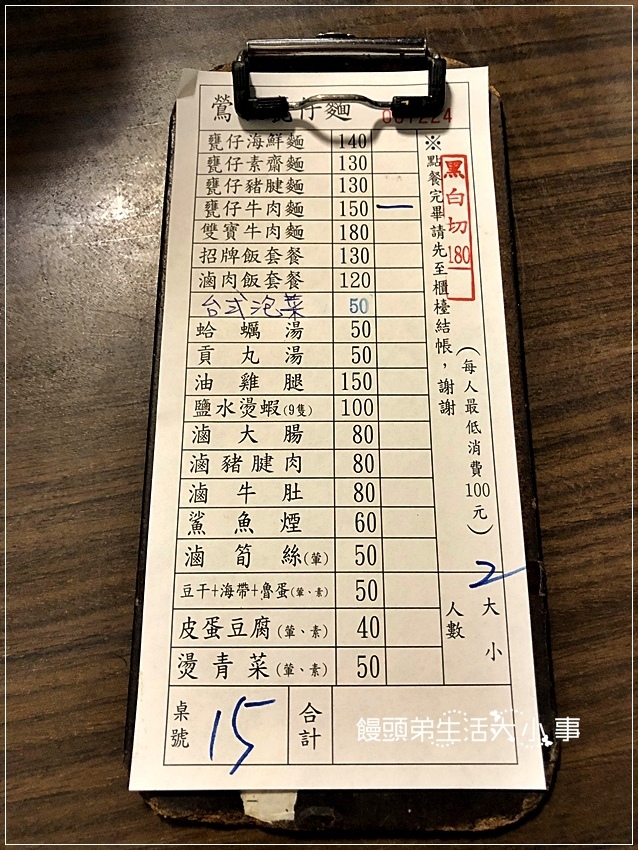 鶯 甕仔麵
甕仔海鮮麵 140
甕仔素齋麵 130
甕仔豬腱麵 130
甕仔牛肉麵 150 一
雙寶牛肉麵 180
招牌飯套餐 130
滷肉飯套餐 120
台式泡菜 50
蛤蠣湯 50
貢丸湯 50
油雞腿 150
鹽水燙蝦(9隻) 100
滷大腸 80
滷豬腱肉 80
滷牛肚 80
鯊魚煙 60
滷筍絲(葷) 50
豆干+海帶+魯蛋(葷、素) 50
皮蛋豆腐(葷、素) 40
燙青菜(葷、素) 50
※點餐完畢請先至櫃檯結帳，謝謝
(每人最低消費100元)
黑白切180
人數
大 2
小
桌號 15
合計
饅頭弟生活大小事